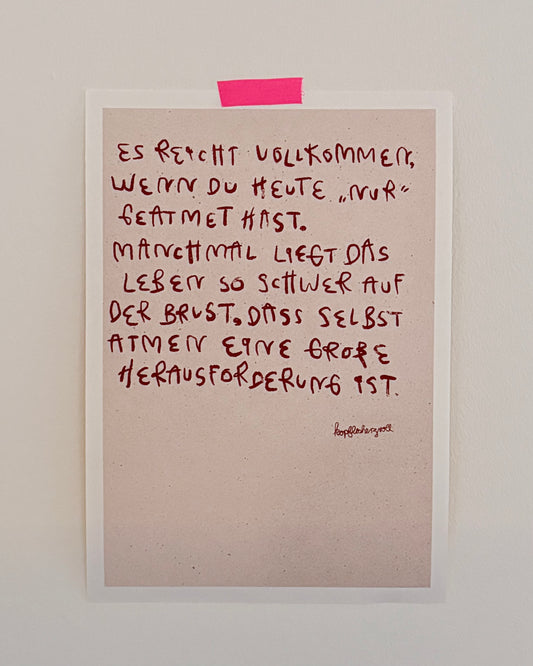 ES REICHT VOLLKOMMEN,
WENN DU HEUTE „NUR“
GEATMET HAST.
MANCHMAL LIEGT DAS
LEBEN SO SCHWER AUF
DER BRUST, DASS SELBST
ATMEN EINE GROßE
HERAUSFORDERUNG IST.
kopfleherzvoll